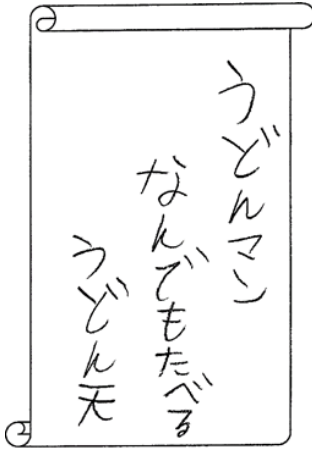 うどんマン
なんでもたべる
うどん天